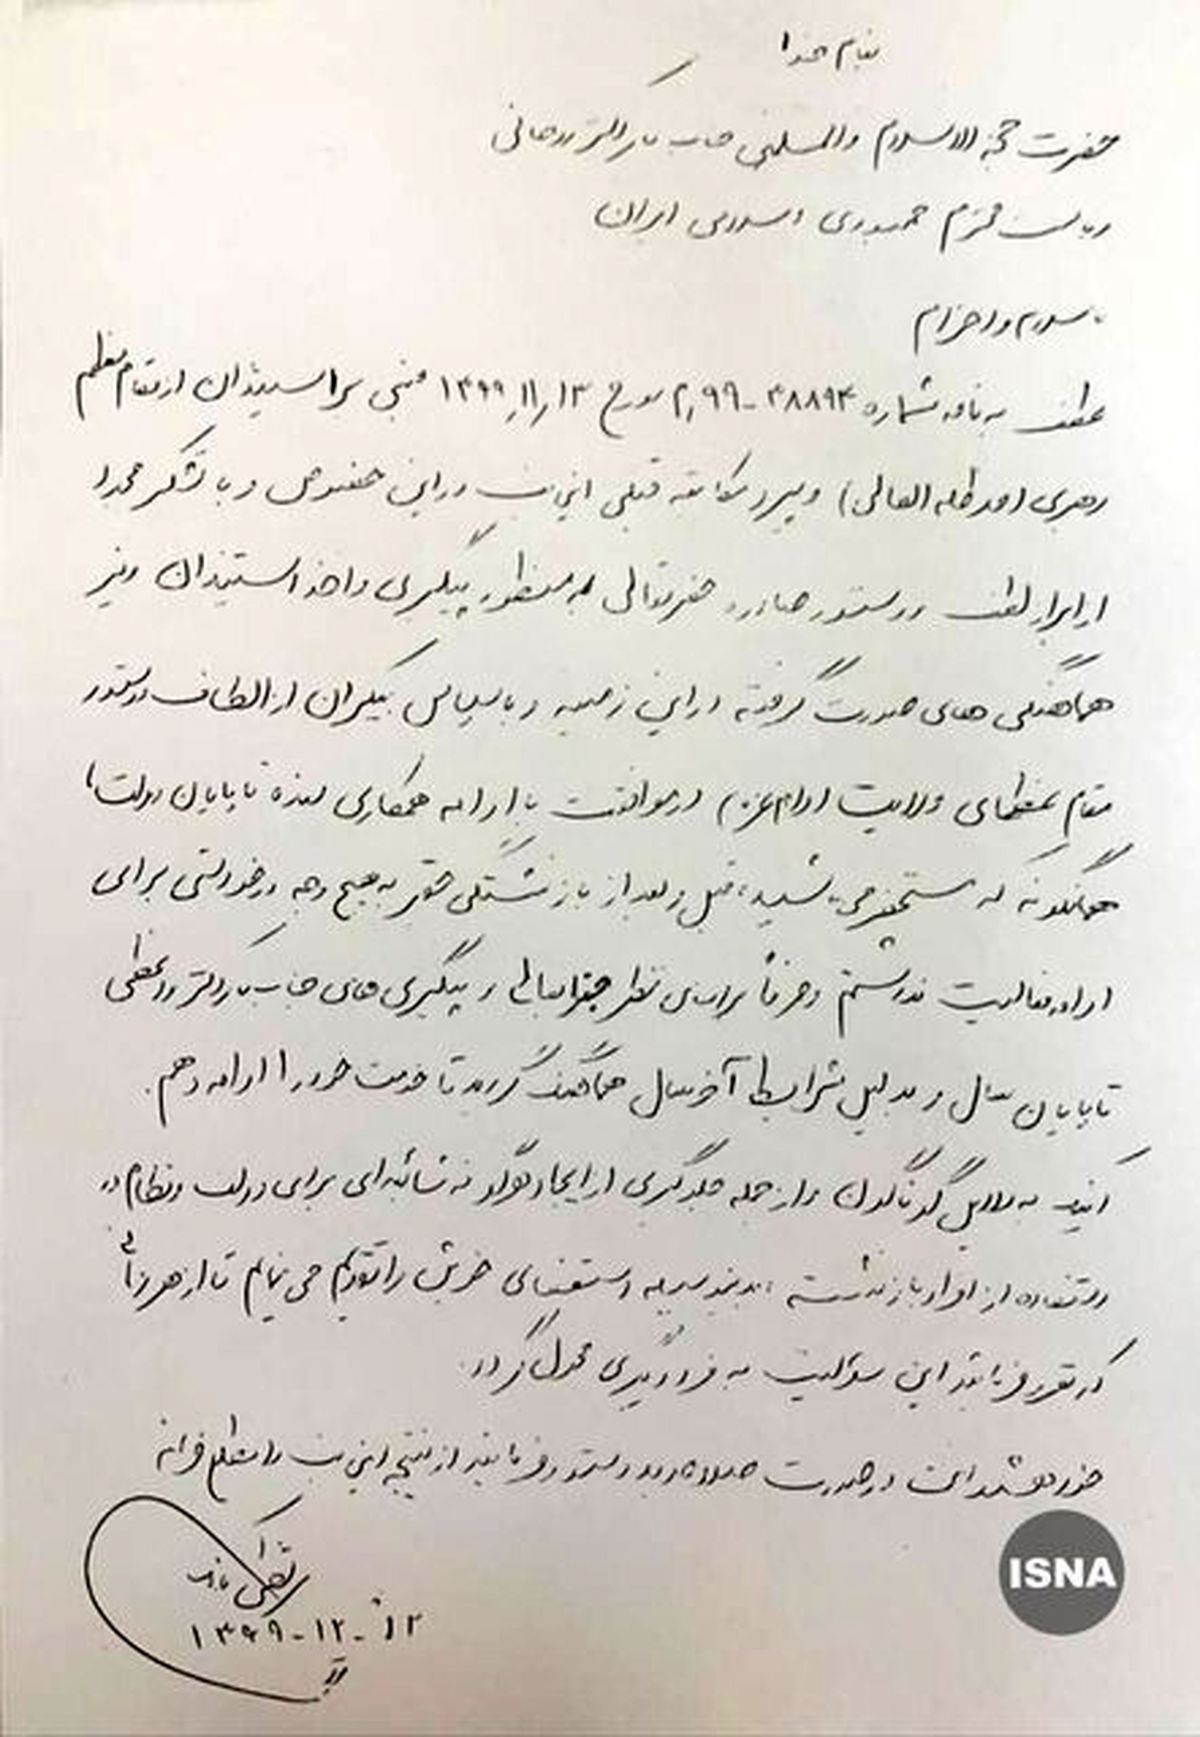 بنام خدا
حضرت حجة الاسلام والمسلمین جناب آقای دکتر روحانی
ریاست محترم جمهوری اسلامی ایران
با سلام و احترام
عطف به نامه شماره ۳۸۸۹۳-م/۹۹ مورخ ۱۳۹۹/۱۱/۱۳ مبنی بر استیذان از مقام معظم
رهبری (مدظله العالی) و پیرو مکاتبه قبلی اینجانب در این خصوص و با تشکر مجدد
از ابراز لطف و دستور صادره حضرتعالی به منظور پیگیری و اخذ استیذان و نیز
هماهنگی های صورت گرفته در این زمینه و با سپاس بیکران از الطاف و دستور
مقام عظمای ولایت (دام عزه) در موافقت با ادامه همکاری بنده تا پایان دولت،
همانگونه که مستحضر می باشید، قبل و بعد از بازنشستگی حقیر به هیچ وجه درخواستی برای
ادامه فعالیت نداشتم و صرفاً بر اساس نظر جنابعالی و پیگیری های جناب آقای دکتر واعظی
تا پایان سال و به دلیل شرایط آخر سال هماهنگ گردید تا خدمت خود را ادامه دهم.
اینک به دلایل گوناگون و از جمله جلوگیری از ایجاد هرگونه شائبه ای برای دولت و نظام در
استفاده از افراد بازنشسته، بدینوسیله استعفای خویش را تقدیم می نمایم تا از هر زمانی
که مقرر فرمائید این مسئولیت به فرد دیگری محول گردد.
خواهشمند است در صورت صلاحدید دستور فرمائید از نتیجه اینجانب را مطلع فرمایند
تقی
۱۳۹۹-۱۲-۱۲
ISNA